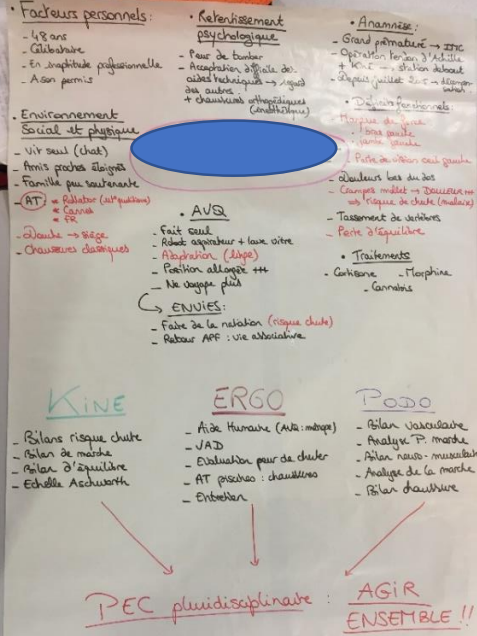 • Facteurs personnels :
- 48 ans
- Célibataire
- En inaptitude professionnelle
- A son permis
• Environnement
Social et physique
- Vit seul (chat)
- Amis proches éloignés
- Famille peu soutenante
- AT : * Rollator
* Cannes
* FR
- Douche → siège
- Chaussures classiques
• Retentissement
psychologique
- Peur de tomber
- Acceptation difficile des
aides techniques → regard
des autres
+ chaussures orthopédiques
(inesthétique)
• AVQ
- Fait seul
- Robot aspirateur + lave vitre
- Adaptation
- Position allongée +++
- Ne voyage plus
ENVIES :
- Faire de la natation (risque chute)
- Retour APF : vie associative
• Anamnèse :
- Grand prématuré → IMC
- Opération tendon d'Achille
station debout
- Depuis juillet
• Déficits fonctionnels :
- Manque de force
bras gauche
jambe gauche
- Perte de vision oeil gauche
- Douleurs bas du dos
- Crampes mollet → Douleur +++
⇒ risque de chute
- Tassement de vertèbres
- Perte d'équilibre
• Traitements
- Cortisone - Morphine
- Cannabis
KINE
- Bilans risque chute
- Bilan de marche
- Bilan d'équilibre
- Echelle Aschworth
ERGO
- Aide Humaine (AVQ : ménage)
- VAD
- Evaluation peur de chuter
- AT piscines : chaussures
- Entretien
PODO
- Bilan vasculaire
- Analyse P. marche
- Bilan neuro-musculaire
- Analyse de la marche
- Bilan chaussure
PEC pluridisciplinaire : AGIR
ENSEMBLE !!